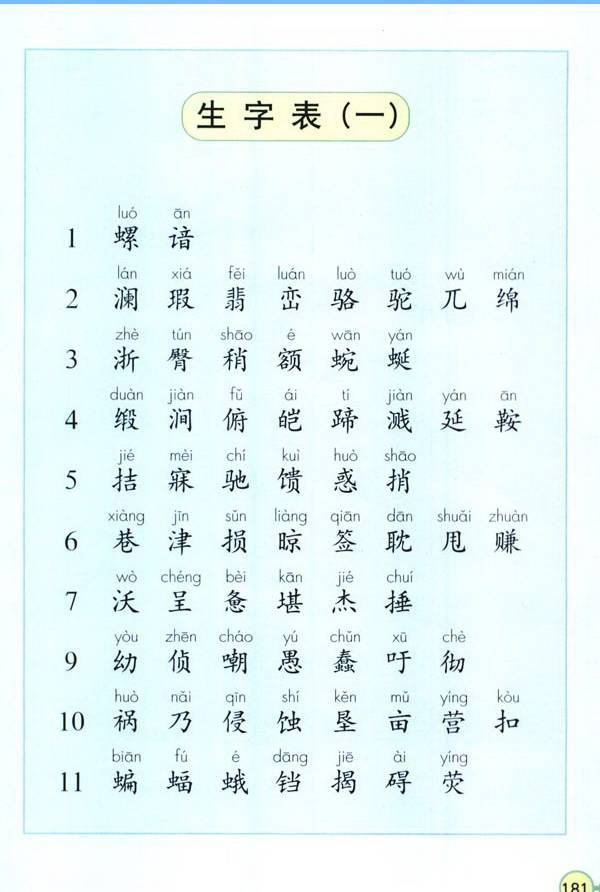 生字表(一)
luó ān
1 螺 谙
lán xiá fěi luán luò tuó wù mián
2 澜 瑕 翡 峦 骆 驼 兀 绵
zhè tún shāo é wān yán
3 浙 臀 稍 额 蜿 蜒
duàn jiàn fǔ ái tí jiàn yán ān
4 缎 涧 俯 皑 蹄 溅 延 鞍
jié mèi chí kuì huò shāo
5 拮 寐 驰 馈 惑 捎
xiàng jīn sǔn liàng qiān dān shuǎi zhuàn
6 巷 津 损 晾 签 耽 甩 赚
wò chéng bèi kān jié chuí
7 沃 呈 惫 堪 杰 捶
yòu zhēn cháo yú chǔn xū chè
9 幼 侦 嘲 愚 蠢 吁 彻
huò nǎi qīn shí kěn mǔ yíng kòu
10 祸 乃 侵 蚀 垦 亩 营 扣
biān fú é dāng jiē ài yíng
11 蝙 蝠 蛾 铛 揭 碍 荧
181